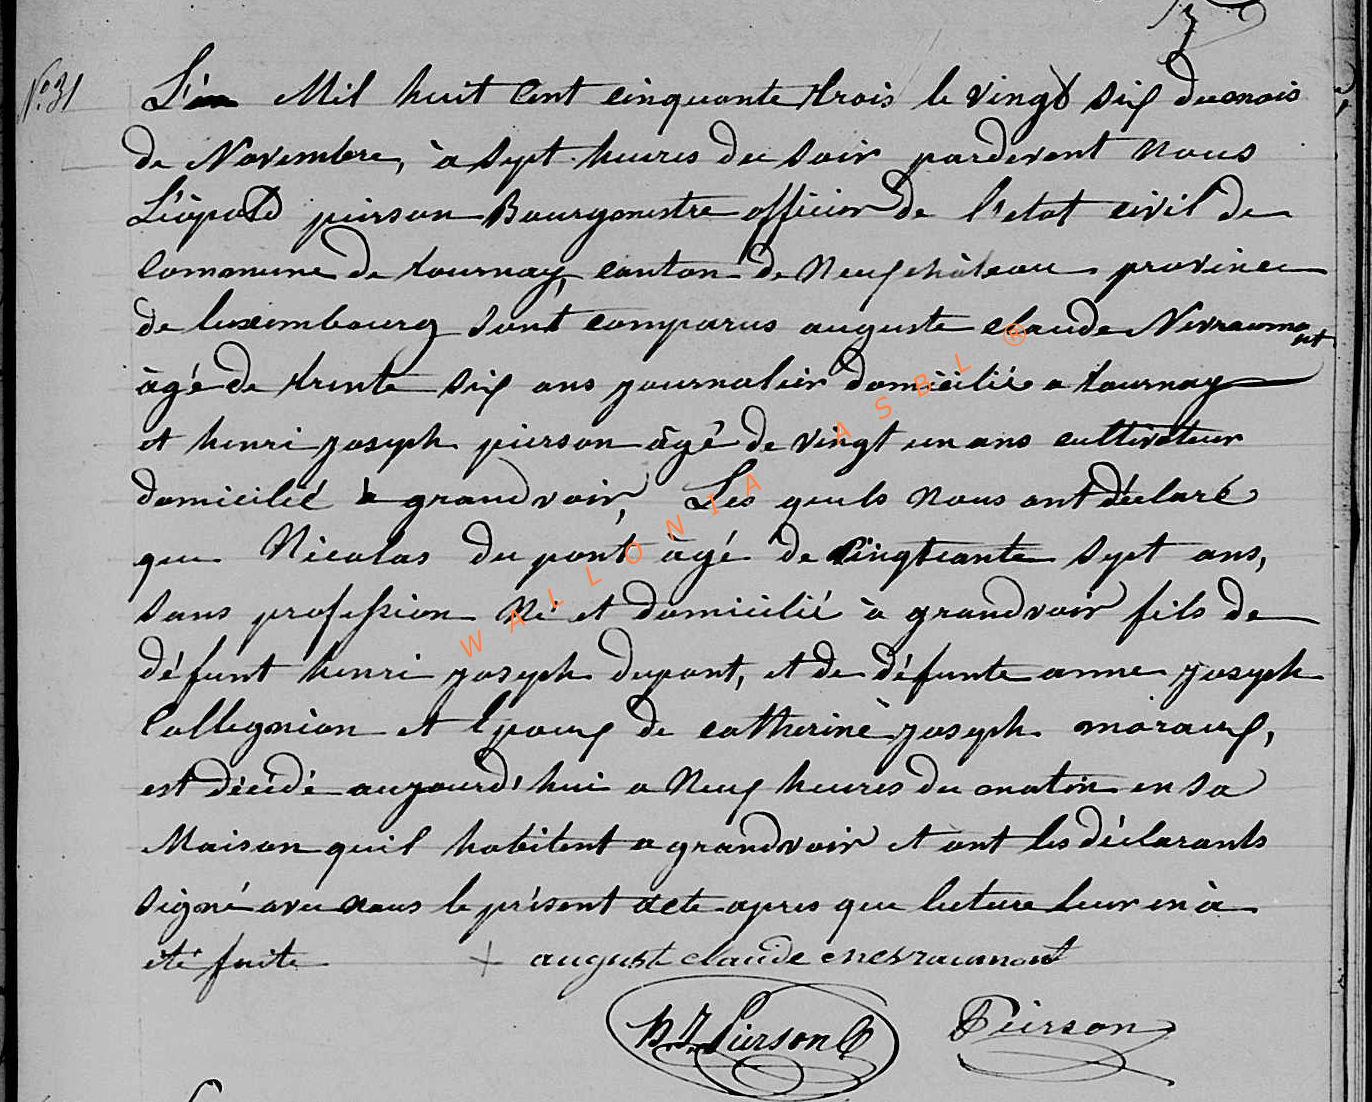 N° 31
L'an Mil huit Cent cinquante trois le vingt six du mois
de Novembre, à sept heures du soir pardevent nous
Léopold pierson Bourgmestre officier de l'etat civil de
Commune de tournay, canton de Neufchâteau province
de luxembourg sont comparus auguste claude Nevraumont
âgé de trente six ans journalier domicilié a tournay
et henri joseph pierson âgé de vingt un ans cultivateur
domicilié à grandvoir, Les quels nous ont déclaré
que Nicolas du pont âgé de cingtante sept ans,
sans profession Né et domicilié à grandvoir fils de
défunt henri joseph dupont, et de défunte anne joseph
Collegnion et Epoux de catherine joseph moraux,
est décédé aujourd'hui a Neuf heures du matin en sa
Maison quil habitent a grandvoir et ont les déclarants
signé avec nous le présent acte apres que lecture leur en à
été faite + august claude nevraumont
h. j. Pierson Peirson
WALLONIA ASBL ®